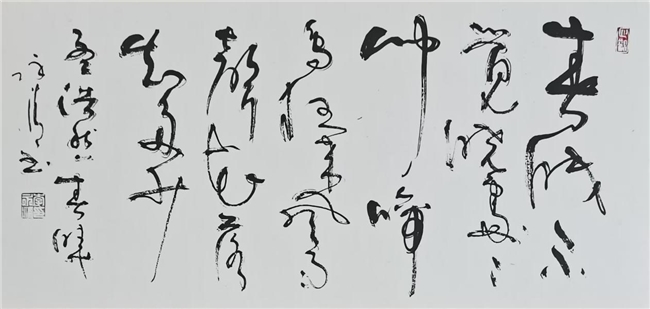 春眠不
觉晓处处
闻啼
鸟夜来风雨
声花落
知多少
孟浩然春晓
书